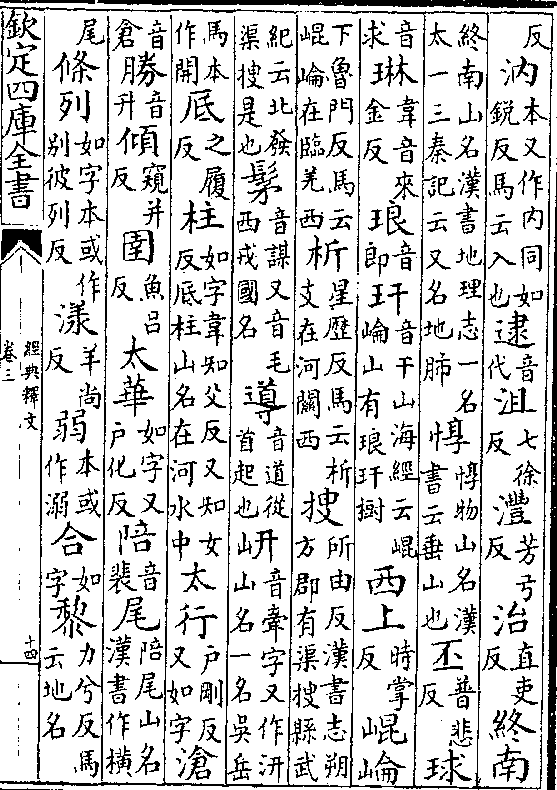 反汭本又作内同如銳反馬云入也逮音代沮七徐反灃芳弓反治直吏反終南
終南山名漢書地理志一名太一三秦記云又名地肺惇惇物山名漢書云垂山也丕普悲反球
音求琳韋音來金反琅音郎玕音干山海經云崐崘山有琅玕樹西上時掌反崐崘
下魯門反馬云崐崘在臨羌西析星歷反馬云析支在河關西搜所由反漢書志朔方郡有渠搜縣武
紀云北發渠搜是也髳音謀又音毛西戎國名導音道從首起也岍音牽字又作汧山名一名吳岳
馬本作開厎之履反柱如字韋知父反又知女反底柱山名在河水中太行戶剛反又如字滄
音倉勝音升傾窺并反圉魚呂反太華如字又戶化反陪音裴尾陪尾山名漢書作橫
尾條列如字本或作别彼列反漾羊尚反弱本或作溺合如字黎力兮反馬云地名
欽定四庫全書
經典釋文
卷三
十四